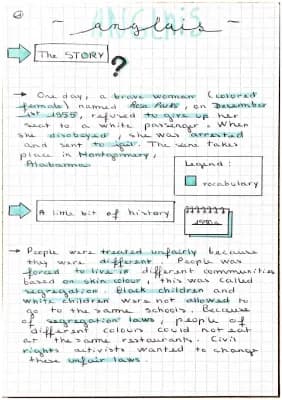 ANGLAIS
~ anglais ~
The STORY ?
→ One day, a brave women (colored
female) named Rosa Parks, on December
1st 1955, refused to give up her
seat to a white passenger. When
she disobeyed, she was arrested
and sent to jail. The scene takes
place in Montgomery,
Alabama.
Legend :
vocabulary
A little bit of history
1950s
→ People were treated unfairly because
they were different. People was
forced to live in different communities
based on skin colour, this was called
segregation. Black children and
white children were not allowed to
go to the same schools. Because
of segregation laws, people of
different colours could not eat
at the same restaurants. Civil
rights activists wanted to change
these unfair laws.